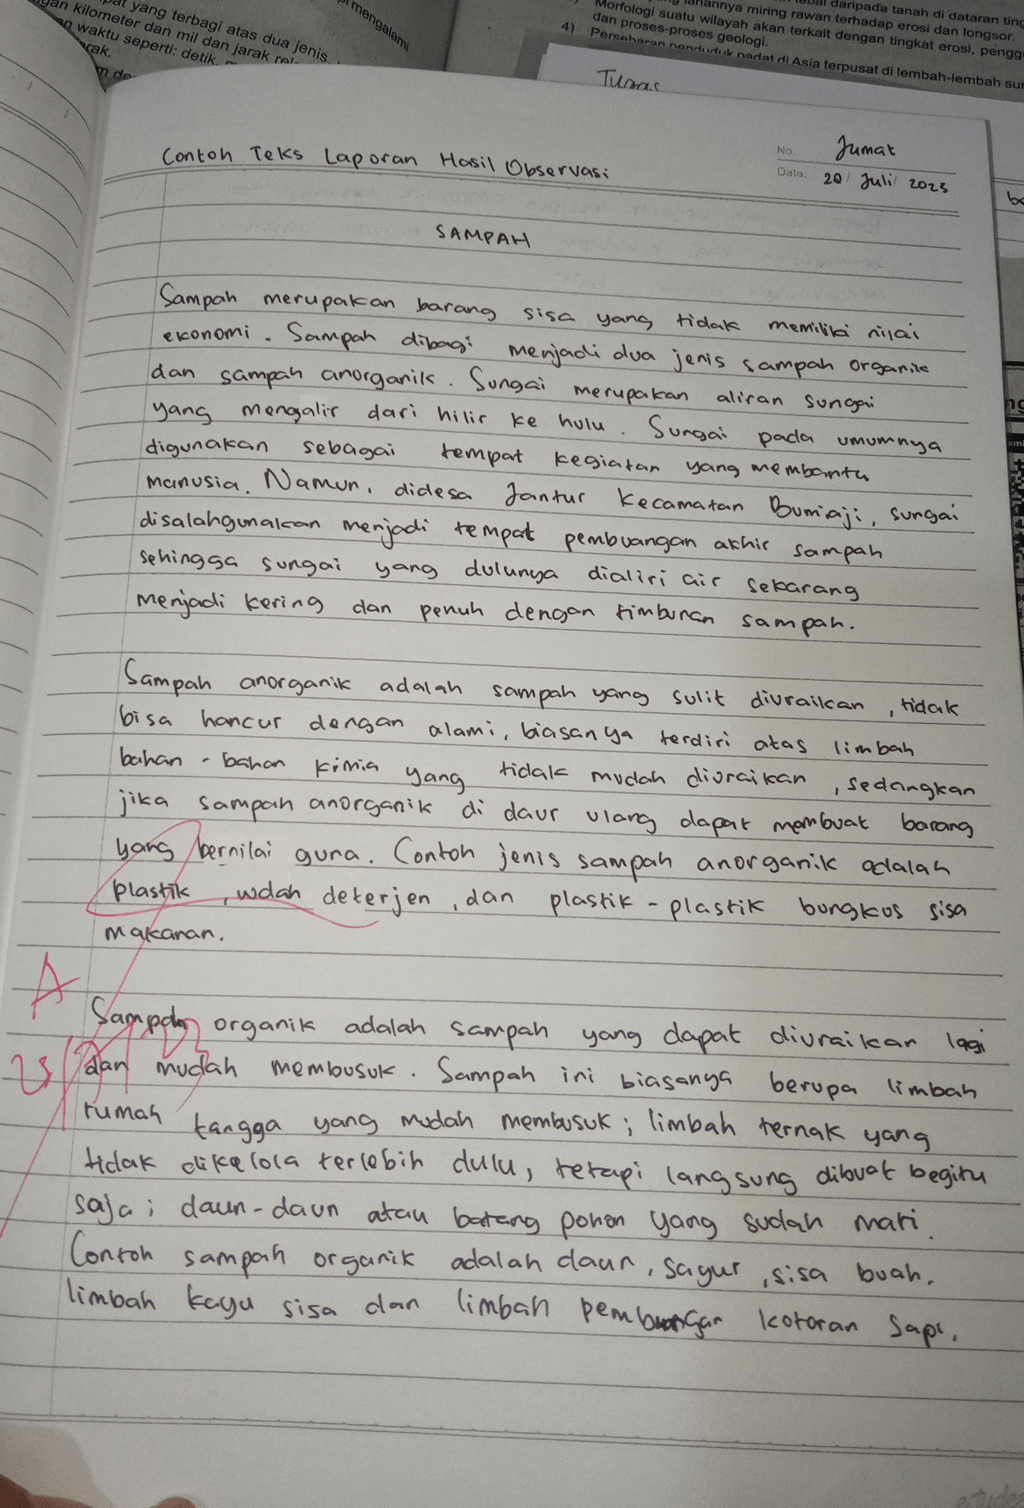 yang terbagi atas dua jenis.
kilometer dan mil dan jarak
waktu seperti: detik,
mengalami
lahannya miring rawan terhadap erosi dan longsor.
daripada tanah di dataran
Morfologi suatu wilayah akan terkait dengan tingkat erosi,
dan proses-proses geologi.
4) Persebaran penduduk padat di Asia terpusat di lembah-lembah
Tugas
No. Jumat
Contoh Teks Laporan Hasil Observasi
Date. 20/ Juli/ 2023
SAMPAH
Sampah merupakan barang sisa yang tidak memiliki nilai
ekonomi. Sampah dibagi menjadi dua jenis sampah organik
dan sampah anorganik. Sungai merupakan aliran sungai
yang mengalir dari hilir ke hulu. Sungai pada umumnya
digunakan sebagai tempat kegiatan yang membantu
manusia. Namun, didesa Jantur Kecamatan Bumiaji, sungai
disalahgunakan menjadi tempat pembuangan akhir sampah
sehingga sungai yang dulunya dialiri air sekarang
menjadi kering dan penuh dengan timbunan sampah.
Sampah anorganik adalah sampah yang sulit diuraikan, tidak
bisa hancur dengan alami, biasanya terdiri atas limbah
bahan-bahan kimia yang tidak mudah diuraikan, sedangkan
jika sampah anorganik di daur ulang dapat membuat barang
yang bernilai guna. Contoh jenis sampah anorganik adalah
plastik, wdah deterjen, dan plastik-plastik bungkus sisa
makanan.
A
Sampah organik adalah sampah yang dapat diuraikan lagi
dan mudah membusuk. Sampah ini biasanya berupa limbah
rumah tangga yang mudah membusuk; limbah ternak yang
tidak dikelola terlebih dulu, tetapi langsung dibuat begitu
saja; daun-daun atau batang pohon yang sudah mati.
Contoh sampah organik adalah daun, sayur, sisa buah,
limbah kayu sisa dan limbah pembuangan kotoran sapi.